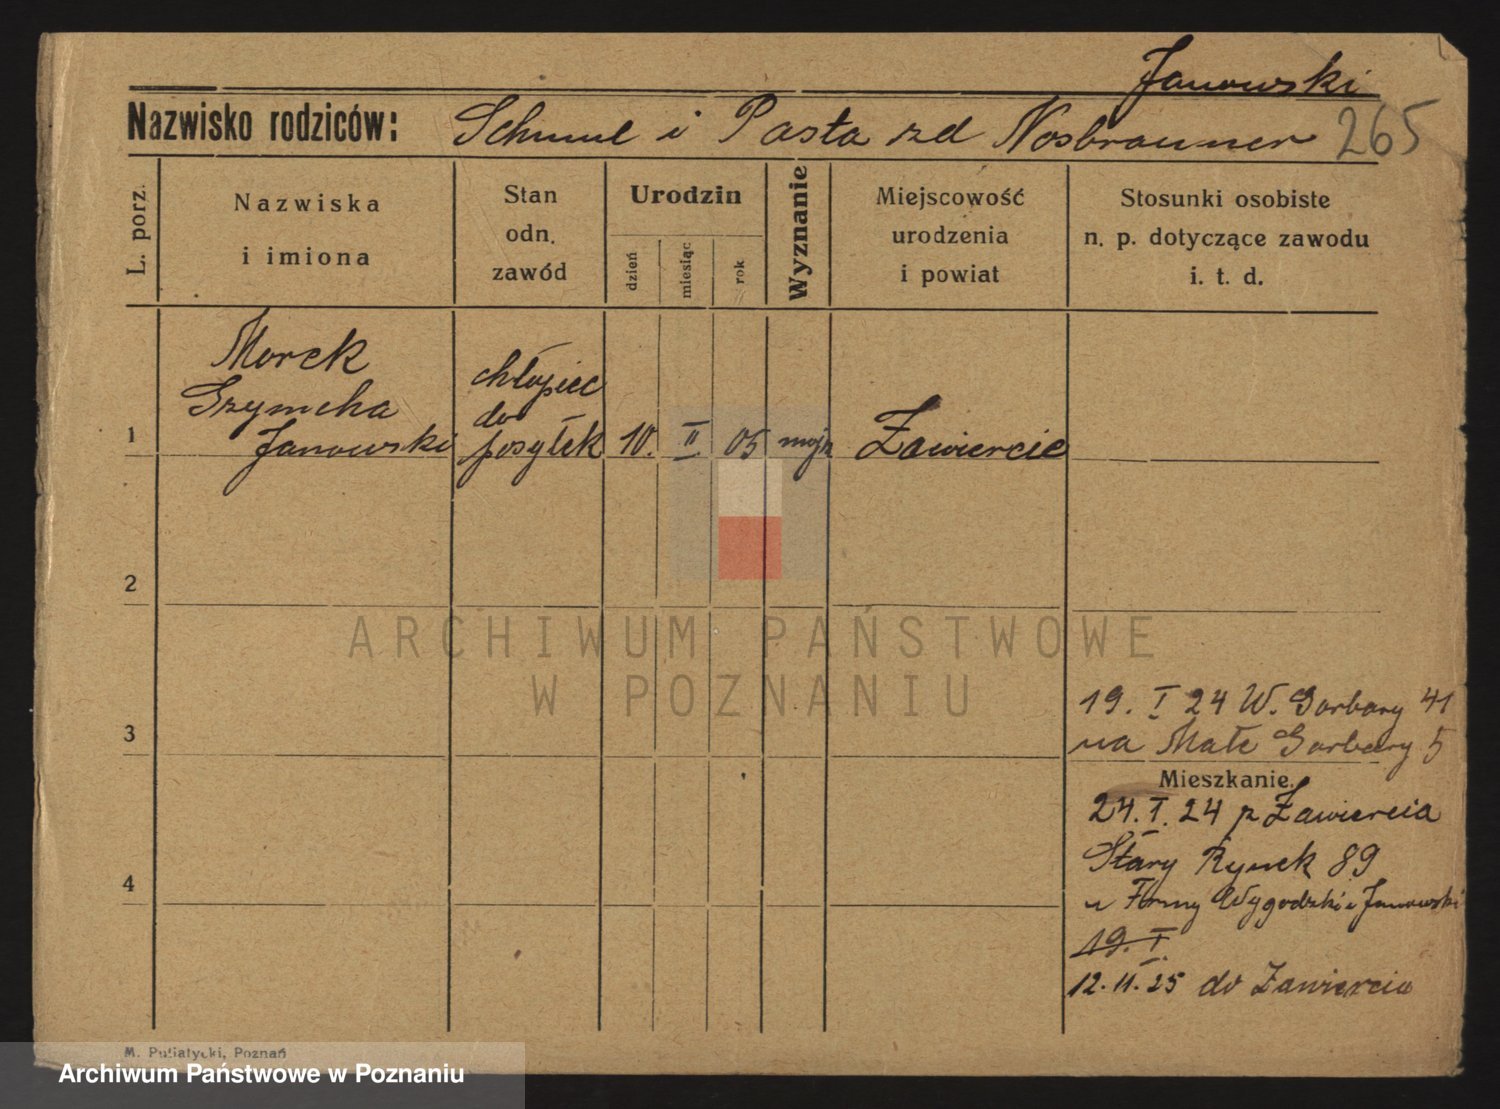 Janowski
Nazwisko rodziców: Schmul i Pasta zd Nosbrauner 265
L. porz.
Nazwiska
i imiona
Stan
odn.
zawód
Urodzin
dzień
miesiąc
rok
Wyznanie
Miejscowość
urodzenia
i powiat
Stosunki osobiste
n. p. dotyczące zawodu
i. t. d.
1
Morek
Szymcha
Janowski
chłopiec
do
posyłek
10.
II
05
mojż
Zawiercie
2
3
4
19. I 24 W. Garbary 41
na Małe Garbary 5
Mieszkanie.
24. I. 24 z Zawiercia
Stary Rynek 89
u Firmy Wygodzki i Janowski
19. I.
12.11.25 do Zawiercia
M. Putiatycki, Poznań
ARCHIWUM PAŃSTWOWE
W POZNANIU
Archiwum Państwowe w Poznaniu